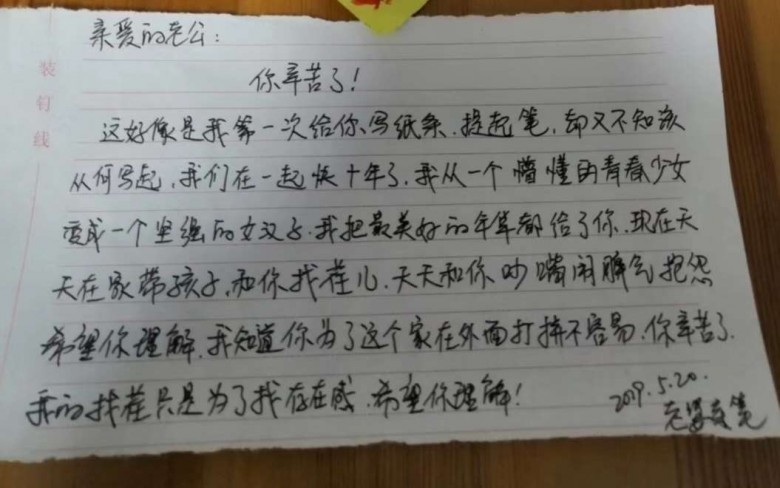 亲爱的老公:
你辛苦了!
这好像是我第一次给你写纸条.提起笔,却又不知该
从何写起,我们在一起快十年了.我从一个懵懂的青春少女
变成一个坚强的女汉子.我把最美好的年华都给了你.现在天
天在家带孩子.和你找茬儿.天天和你吵嘴闹脾气抱怨
希望你理解.我知道你为了这个家在外面打拼不容易.你辛苦了.
我的找茬只是为了找存在感.希望你理解!
2019.5.20.
装钉线